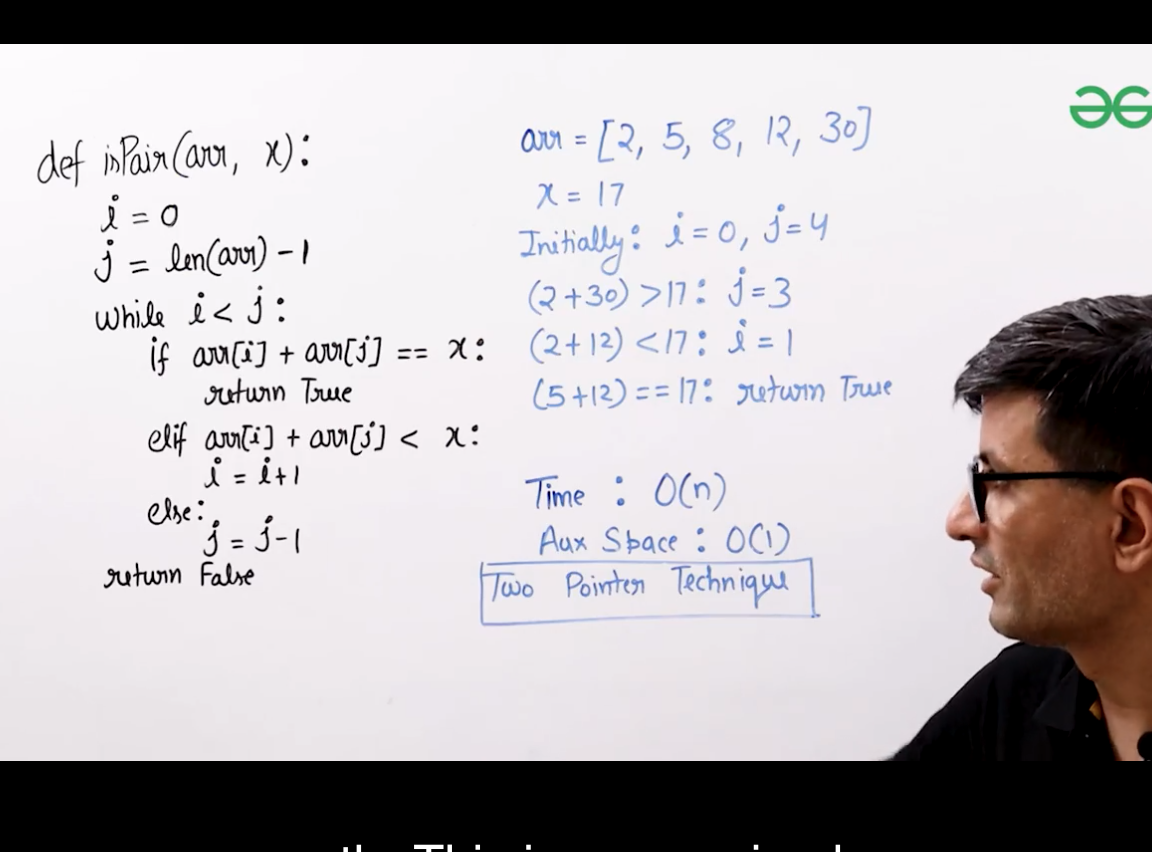 def isPair(arr, x):
i = 0
j = len(arr) - 1
while i < j:
if arr[i] + arr[j] == x:
return True
elif arr[i] + arr[j] < x:
i = i+1
else:
j = j-1
return False
arr = [2, 5, 8, 12, 30]
x = 17
Initially: i = 0, j = 4
(2+30) > 17: j = 3
(2+12) < 17: i = 1
(5+12) == 17: return True
Time : O(n)
Aux Space : O(1)
Two Pointer Technique